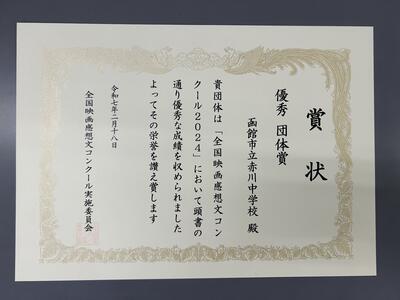 賞状
優秀 団体賞
函館市立赤川中学校 殿
貴団体は「全国映画感想文コン
クール2024」において頭書の
通り優秀な成績を収められました
よってその栄誉を讃え賞します
令和七年二月十八日
全国映画感想文コンクール実施委員会